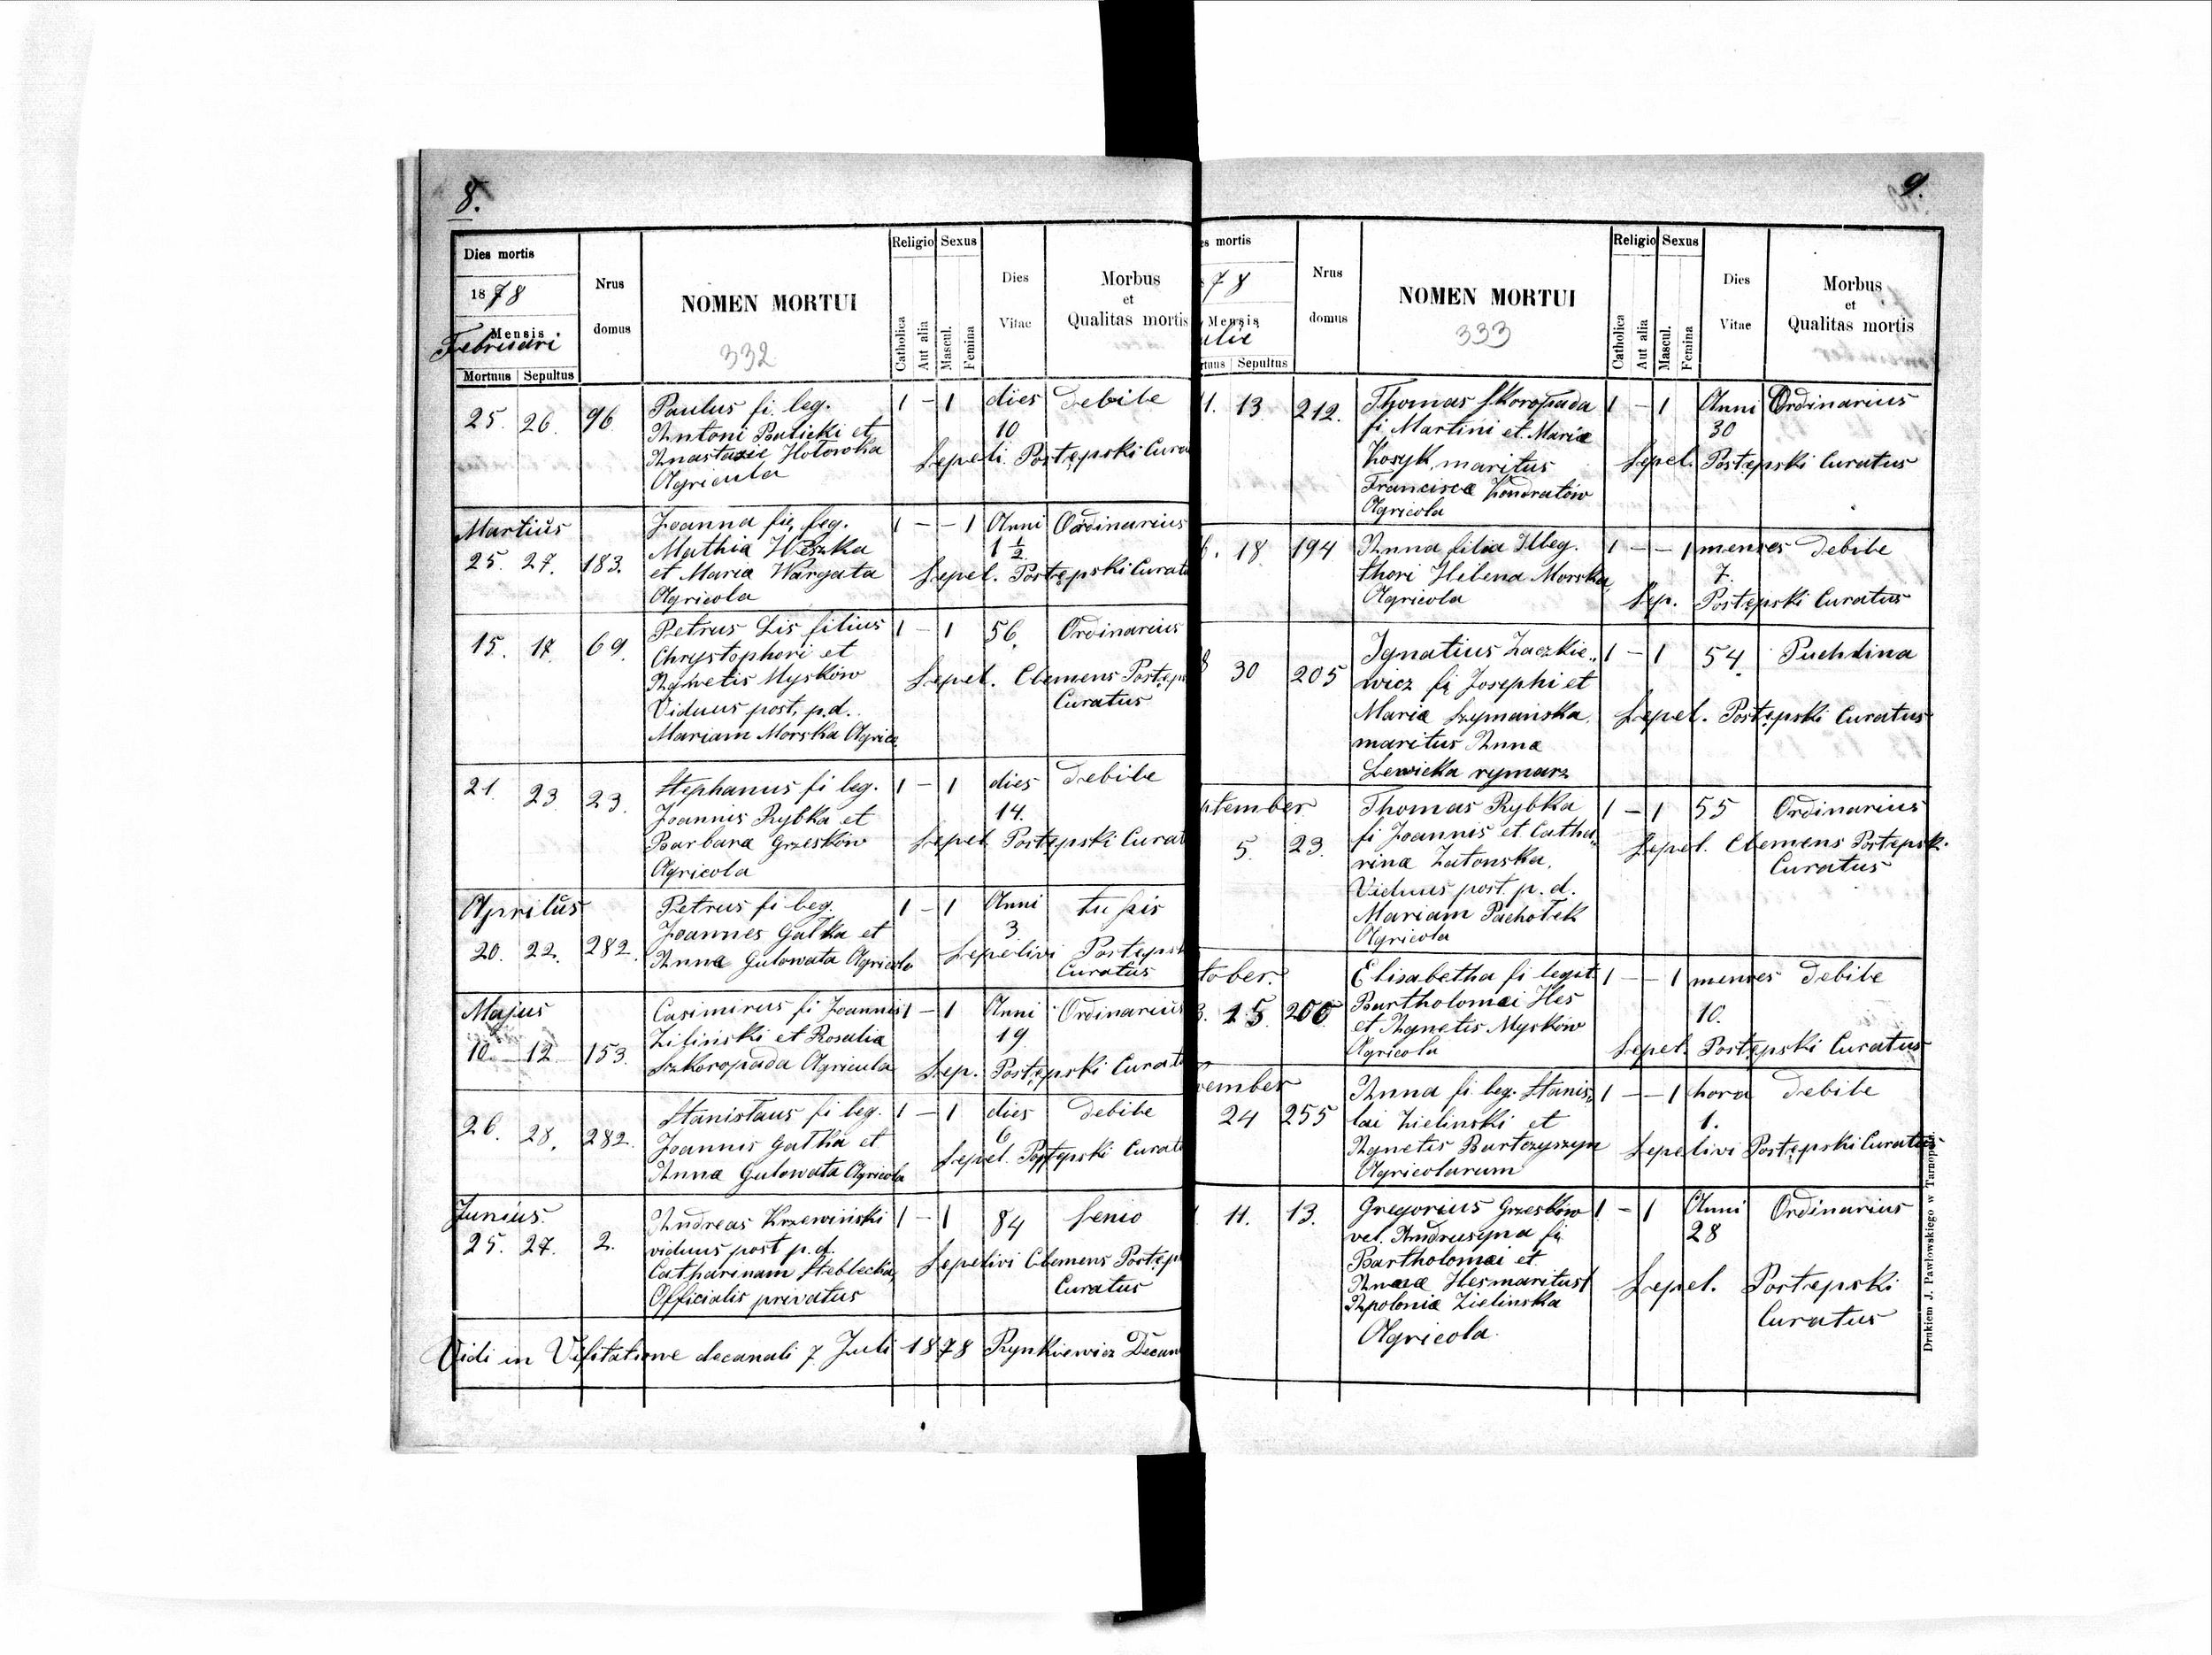 8.
Dies mortis
1878
Mensis
Februari
Mortuus | Sepultus
Nrus domus
NOMEN MORTUI
332
Religio
Catholica
Aut alia
Sexus
Mascul.
Femina
Dies Vitae
Morbus
et
Qualitas mortis
25. 26. 96. Paulus fi. leg. 1 - 1 dies debile
Antoni Bulicki et 10
Anastasie Hołowka Sepeli. Postępski Cura
Agricula
Martius Joanna fi. leg. 1 - - 1 Anni Ordinarius
25. 27. 183. Mathia Wészka 1 1/2
et Maria Wargata Sepel. Postępski Curat
Agricola
15. 17. 69. Petrus Lis filius 1 - 1 56. Ordinarius
Chrystophori et
Agnetis Myskòw Sepel. Clemens Postęp
Viduus post. p.d. Curatus
Mariam Morska Agrico
21. 23. 23. Stephanus fi leg. 1 - 1 dies debile
Joannis Rybka et 14.
Barbara Grzeskòw Sepel Postępski Curat
Agricola
Aprilus Petrus fi leg. 1 - 1 Anni tussis
20. 22. 282. Joannes Gałka et 3
Anna Gulowata Agricola Sepelivi Postępsk
Curatus
Majus Casimirus fi Joannis 1 - 1 Anni Ordinarius
10. 12 153. Zilinski et Rosalia 19
Szkoropada Agricula Sep. Postępski Curat
26. 28. 282. Stanislaus fi leg. 1 - 1 dies debile
Joannis Gałka et 6
Anna Gulowata Agricola Sepel. Postępski Curat
Junius. Andreas Krzewiński 1 - 1 84 Senio
25. 27. 2. viduus post p.d.
Catharinam Steblecka Sepelivi Clemens Postęp
Officialis privatus Curatus
Vidi in Visitatione decanali 7 Juli 1878 Rynkiewicz Decan
9.
s mortis
78
Mensis
ulie
tuus | Sepultus
Nrus domus
NOMEN MORTUI
333
Religio
Catholica
Aut alia
Sexus
Mascul.
Femina
Dies Vitae
Morbus
et
Qualitas mortis
1. 13 212. Thomas Skoropada 1 - 1 Anni Ordinarius
fi Martini et Maria 30
Kosyk, maritus Sepel. Postępski Curatus
Francisca Kondratòw
Agricola
18 194 Anna filia Illeg. 1 - - 1 menses debile
thori Helena Morska 7.
Agricola Sep. Postępski Curatus
30 205 Ignatius Zaczkie„ 1 - 1 54. Puchlina
wicz fi Josephi et
Maria Szymanska. Sepel. Postępski Curatus
maritus Anna
Lewicka rymarz
ptember Thomas Rybka 1 - 1 55 Ordinarius
5. 23. fi Joannis et Catha„
rina Zatonska. Sepel. Clemens Postępski
Viduus post. p. d. Curatus
Mariam Pachołek
Agricola
tober. Elisabetha fi legit 1 - - 1 menses debile
3. 15. 200 Bartholomei Hes 10.
et Agnetis Myskòw
Agricola Sepel. Postępski Curatus
ember Anna fi leg. Stanis„ 1 - - 1 hora debile
24 255 lai Zielinski et 1.
Agnetis Bartczyszyn Sepelivi Postępski Curatus
Agricolarum
11. 13. Gregorius Grzeskòw 1 - 1 Anni Ordinarius
vel. Andrusyna fi 28
Bartholomei et
Hes maritus Sepel. Postępski
Apolonia Zielinska Curatus
Agricola.
Drukiem J. Pawłowskiego w Tarnopolu.